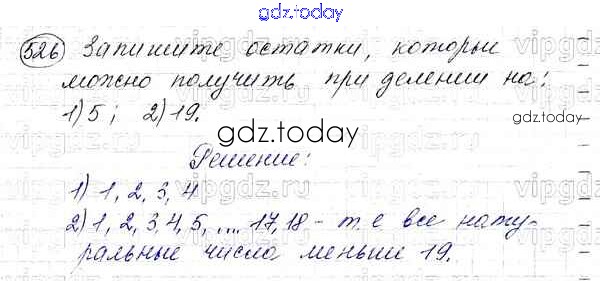 gdz.today
526 Запишите остатки, которые
можно получить при делении на:
1) 5; 2) 19.
gdz.today
Решение:
1) 1, 2, 3, 4
2) 1, 2, 3, 4, 5, .... 17, 18 - т.е все нату-
ральные числа меньше 19.
gdz.today